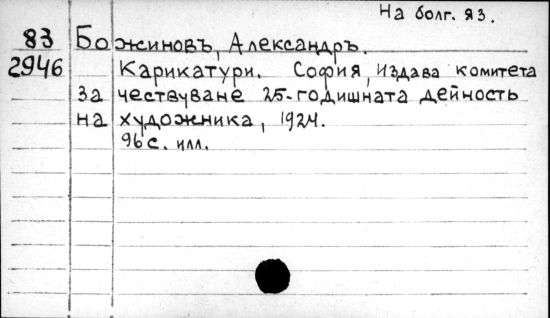 На болг. яз.
83 Божиновъ, Александръ.
2946 Карикатури. София, Издава комитета
за чествуване 25-годишната дейность
на художника, 1924.
96 с. илл.